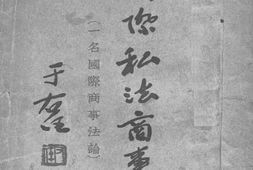 際私法商事
(一名國際商事法論)
于右任